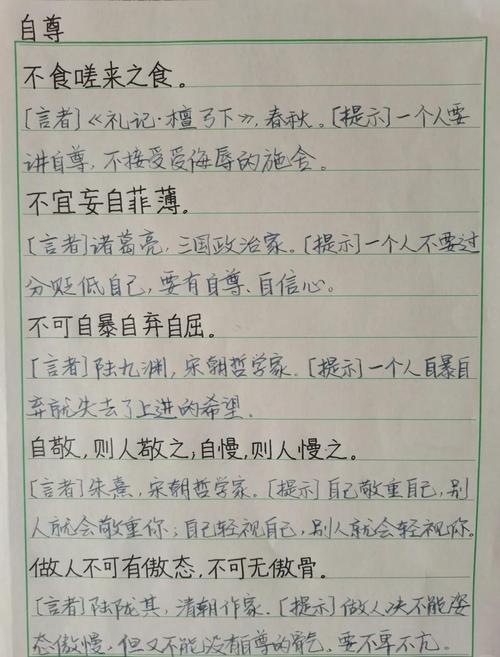 自尊
不食嗟来之食。
[言者]《礼记·檀弓下》,春秋。[提示]一个人要
讲自尊,不接受受侮辱的施舍。
不宜妄自菲薄。
[言者]诸葛亮,三国政治家。[提示]一个人不要过
分贬低自己,要有自尊、自信心。
不可自暴自弃自屈。
[言者]陆九渊,宋朝哲学家。[提示]一个人自暴自
弃就失去了上进的希望.
自敬,则人敬之,自慢,则人慢之。
[言者]朱熹,宋朝哲学家。[提示]自己敬重自己,别
人就会敬重你;自己轻视自己,别人就会轻视你。
做人不可有傲态,不可无傲骨。
[言者]陆陇其,清朝作家。[提示]做人决不能姿
态傲慢,但又不能没有自尊的骨气,要不卑不亢。